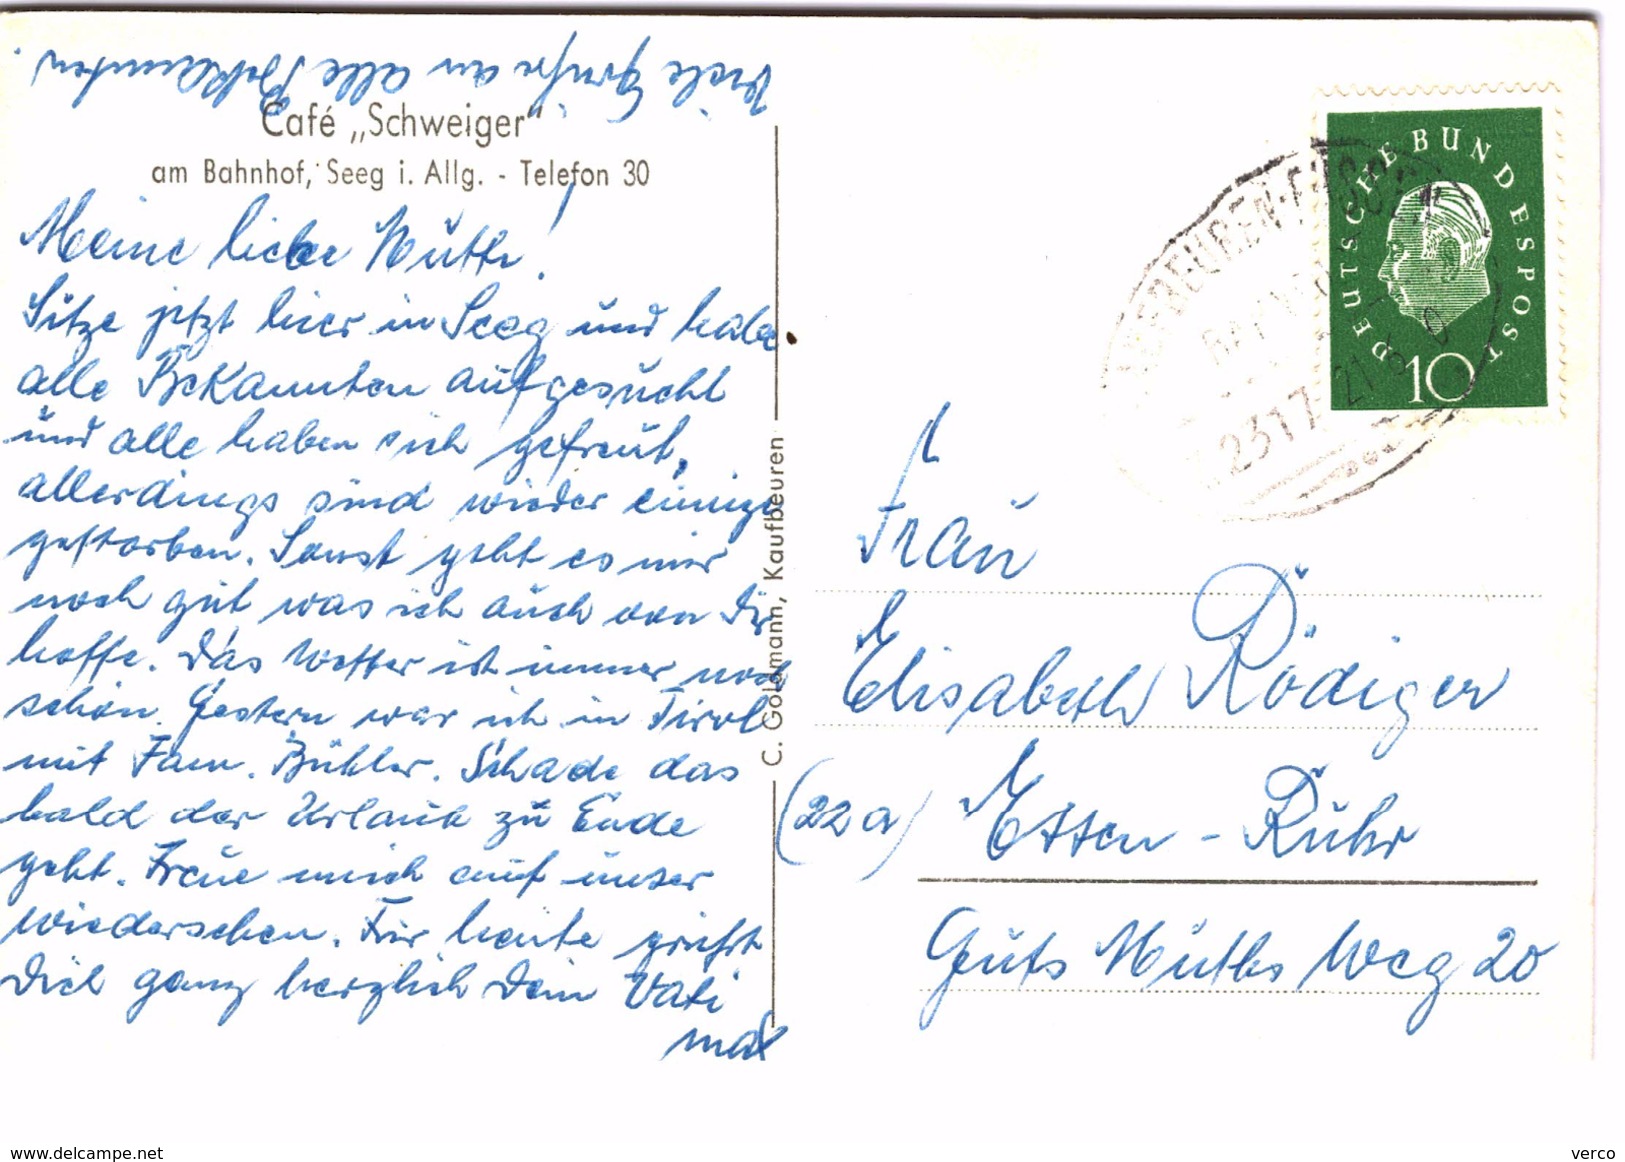 Viele Grüße an alle Bekannten.
Café „Schweiger"
am Bahnhof, Seeg i. Allg. - Telefon 30
Meine liebe Mutti!
Sitze jetzt hier in Seeg und habe
alle Bekannten aufgesucht
und alle haben sich gefreut,
allerdings sind wieder einige
gestorben. Sonst geht es mir
noch gut was ich auch von Dir
hoffe. Das Wetter ist immer noch
schön. Gestern war ich in Tirol
mit Fam. Bühler. Schade das
bald der Urlaub zu Ende
geht. Freue mich auf unser
wiedersehen. Für heute grüßt
Dich ganz herzlich Dein Vati
max
C. Goldmann, Kaufbeuren
DEUTSCHE BUNDESPOST
10
2317
Frau
Elisabeth Rödiger
(22a) Essen - Ruhr
Guts Muths Weg 20
www.delcampe.net
verco